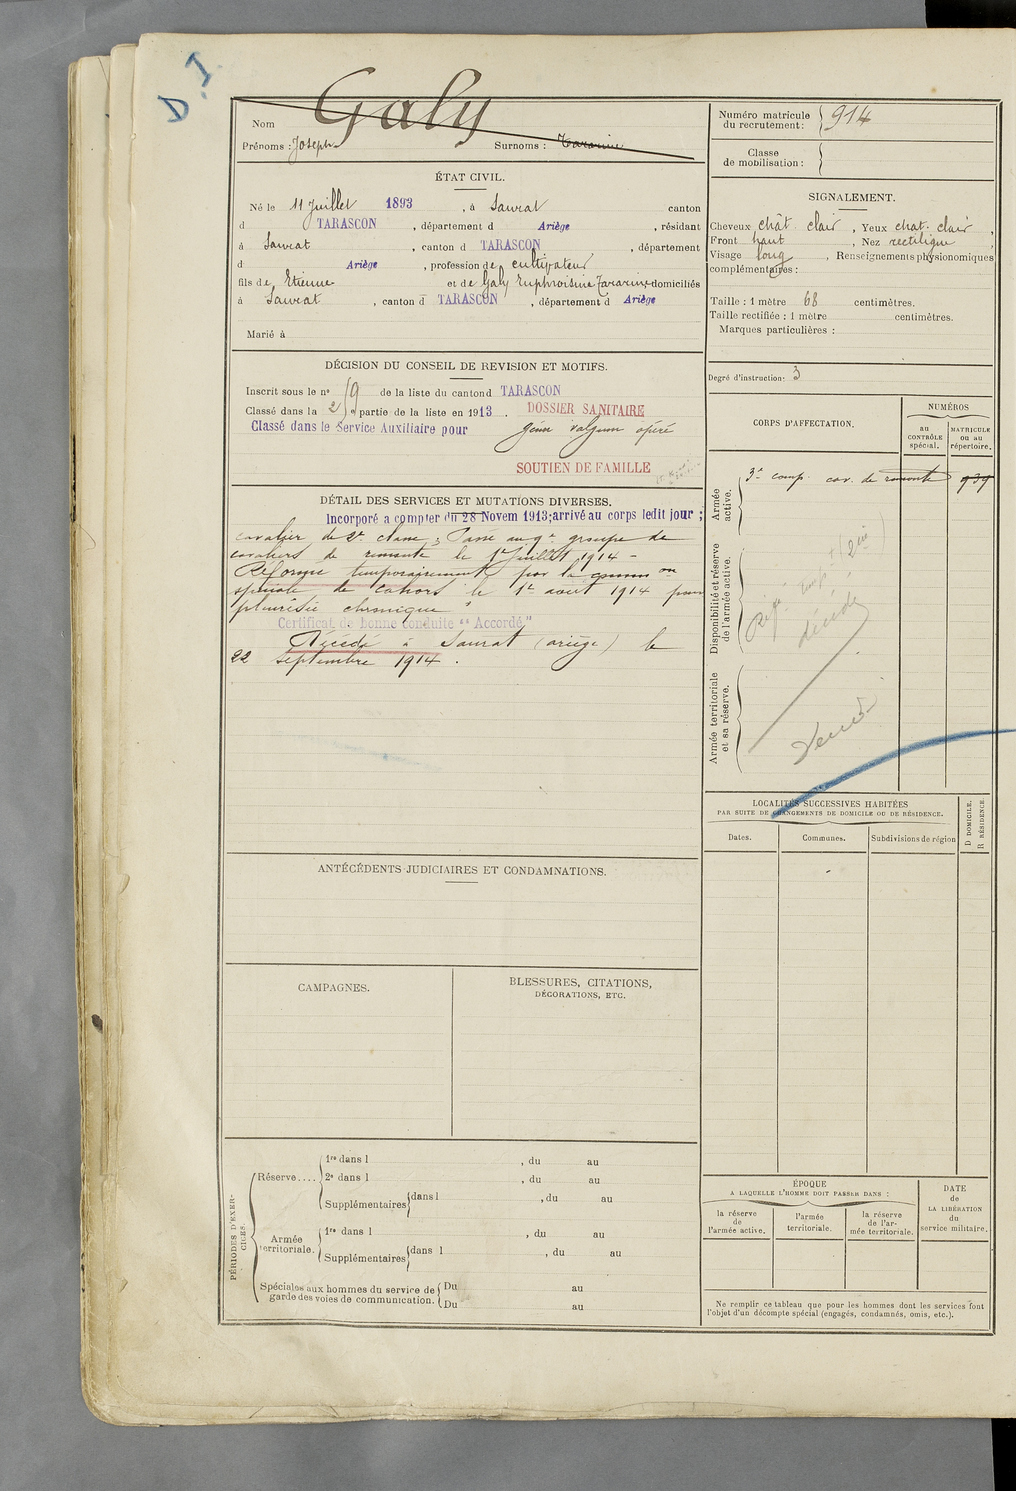 D.I
Nom Galy
Prénoms : Joseph Surnoms : Tararine
Numéro matricule du recrutement : 914
Classe de mobilisation :
ÉTAT CIVIL.
Né le 11 Juillet 1893, à Saurat canton
d TARASCON, département d Ariège, résidant
à Saurat, canton d TARASCON, département
d Ariège, profession de cultivateur
fils de Etienne et de Galy Euphroisine Tararine domiciliés
à Saurat, canton d TARASCON, département d Ariège
Marié à
SIGNALEMENT.
Cheveux chât. clair, Yeux chat. clair,
Front haut, Nez rectiligne,
Visage long, Renseignements physionomiques
complémentaires :
Taille : 1 mètre 68 centimètres.
Taille rectifiée : 1 mètre centimètres.
Marques particulières :
Degré d'instruction : 3
DÉCISION DU CONSEIL DE REVISION ET MOTIFS.
Inscrit sous le nº 9 de la liste du canton d TARASCON
Classé dans la 2e partie de la liste en 1913. DOSSIER SANITAIRE
Classé dans le Service Auxiliaire pour genu valgum opéré
SOUTIEN DE FAMILLE
DÉTAIL DES SERVICES ET MUTATIONS DIVERSES.
Incorporé a compter du 28 Novem 1913; arrivé au corps ledit jour ;
cavalier de 2e classe ; Passé au 9e groupe de
cavaliers de remonte le 1er Juillet 1914 -
Réformé temporairement par la comm on
spéciale de Cahors le 1er aout 1914 pour
pleurésie chronique "
Certificat de bonne conduite " Accordé."
Décédé à Saurat (ariège) le
22 septembre 1914.
CORPS D'AFFECTATION.
NUMÉROS
au CONTRÔLE spécial.
MATRICULE ou au répertoire.
Armée active.
3e comp. cav. de remonte 939
Disponibilité et réserve de l'armée active.
Réfé temp. (2 )
décédé
Armée territoriale et sa réserve.
LOCALITÉS SUCCESSIVES HABITÉES
PAR SUITE DE CHANGEMENTS DE DOMICILE OU DE RÉSIDENCE.
Dates.
Communes.
Subdivisions de région
D DOMICILE.
R RÉSIDENCE.
ANTÉCÉDENTS JUDICIAIRES ET CONDAMNATIONS.
CAMPAGNES.
BLESSURES, CITATIONS,
DÉCORATIONS, ETC.
PÉRIODES D'EXERCICES.
Réserve.... 1re dans l , du au
2e dans l , du au
Supplémentaires dans l , du au
Armée territoriale. 1re dans l , du au
Supplémentaires dans l , du au
Spéciales aux hommes du service de garde des voies de communication. Du au
Du au
ÉPOQUE
A LAQUELLE L'HOMME DOIT PASSER DANS :
la réserve de l'armée active.
l'armée territoriale.
la réserve de l'armée territoriale.
DATE de LA LIBÉRATION du service militaire.
Ne remplir ce tableau que pour les hommes dont les services font
l'objet d'un décompte spécial (engagés, condamnés, omis, etc.).